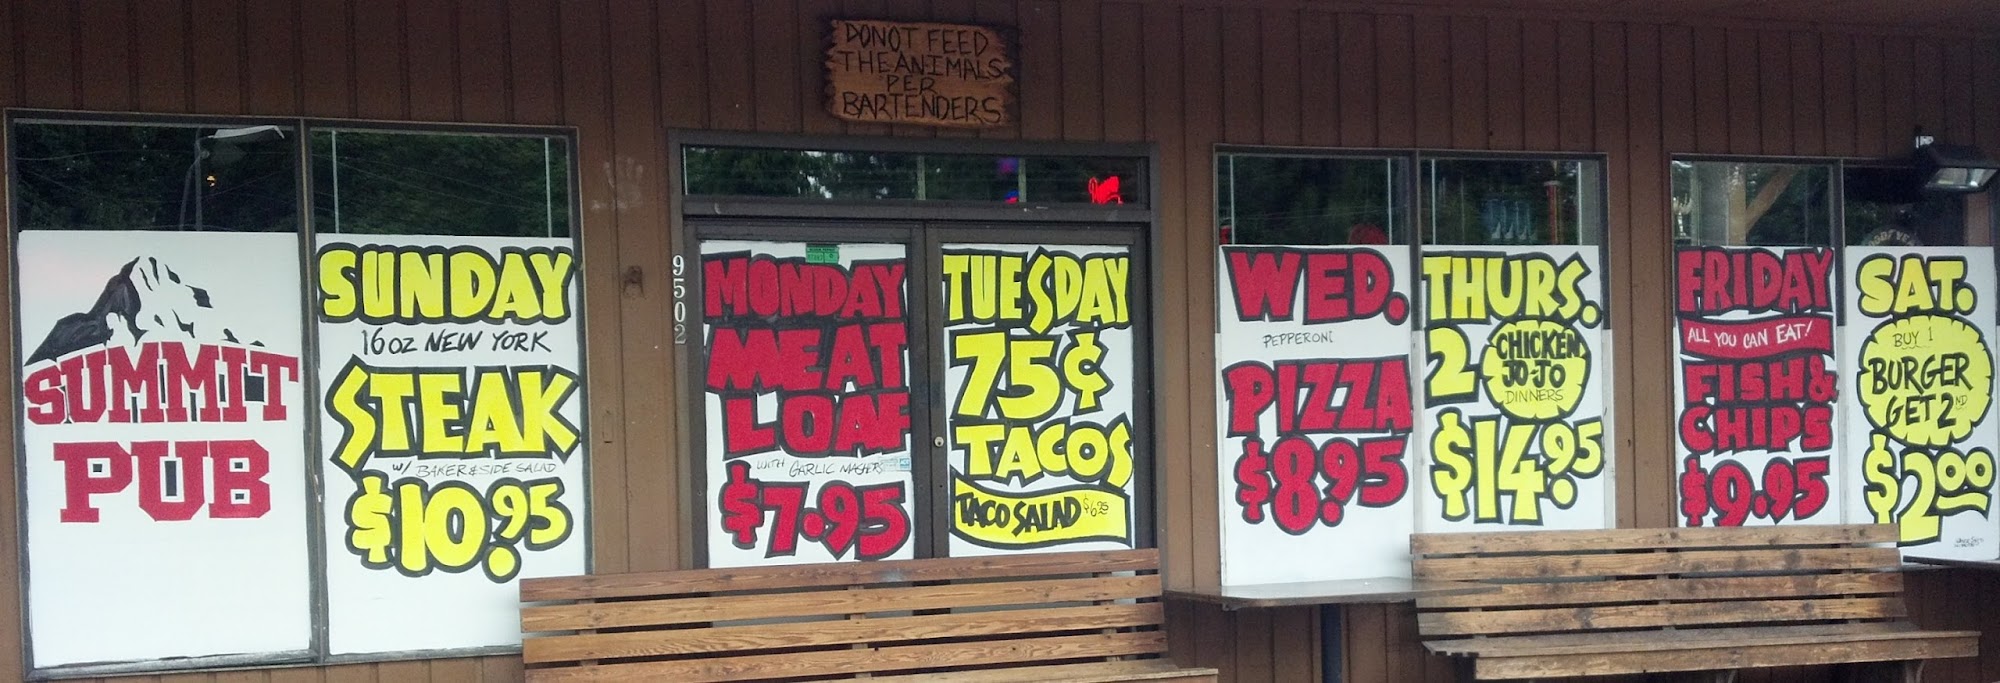 DO NOT FEED
THE ANIMALS
PER
BARTENDERS
SUMMIT
PUB
SUNDAY
16 OZ NEW YORK
STEAK
W/ BAKER & SIDE SALAD
$10.95
9502
MONDAY
MEAT
LOAF
WITH GARLIC MASHERS
$7.95
TUESDAY
75¢
TACOS
TACO SALAD $6.95
WED.
PEPPERONI
PIZZA
$8.95
THURS.
2 CHICKEN
JO-JO
DINNERS
$14.95
FRIDAY
ALL YOU CAN EAT!
FISH &
CHIPS
$9.95
SAT.
BUY 1
BURGER
GET 2ND
$2.00